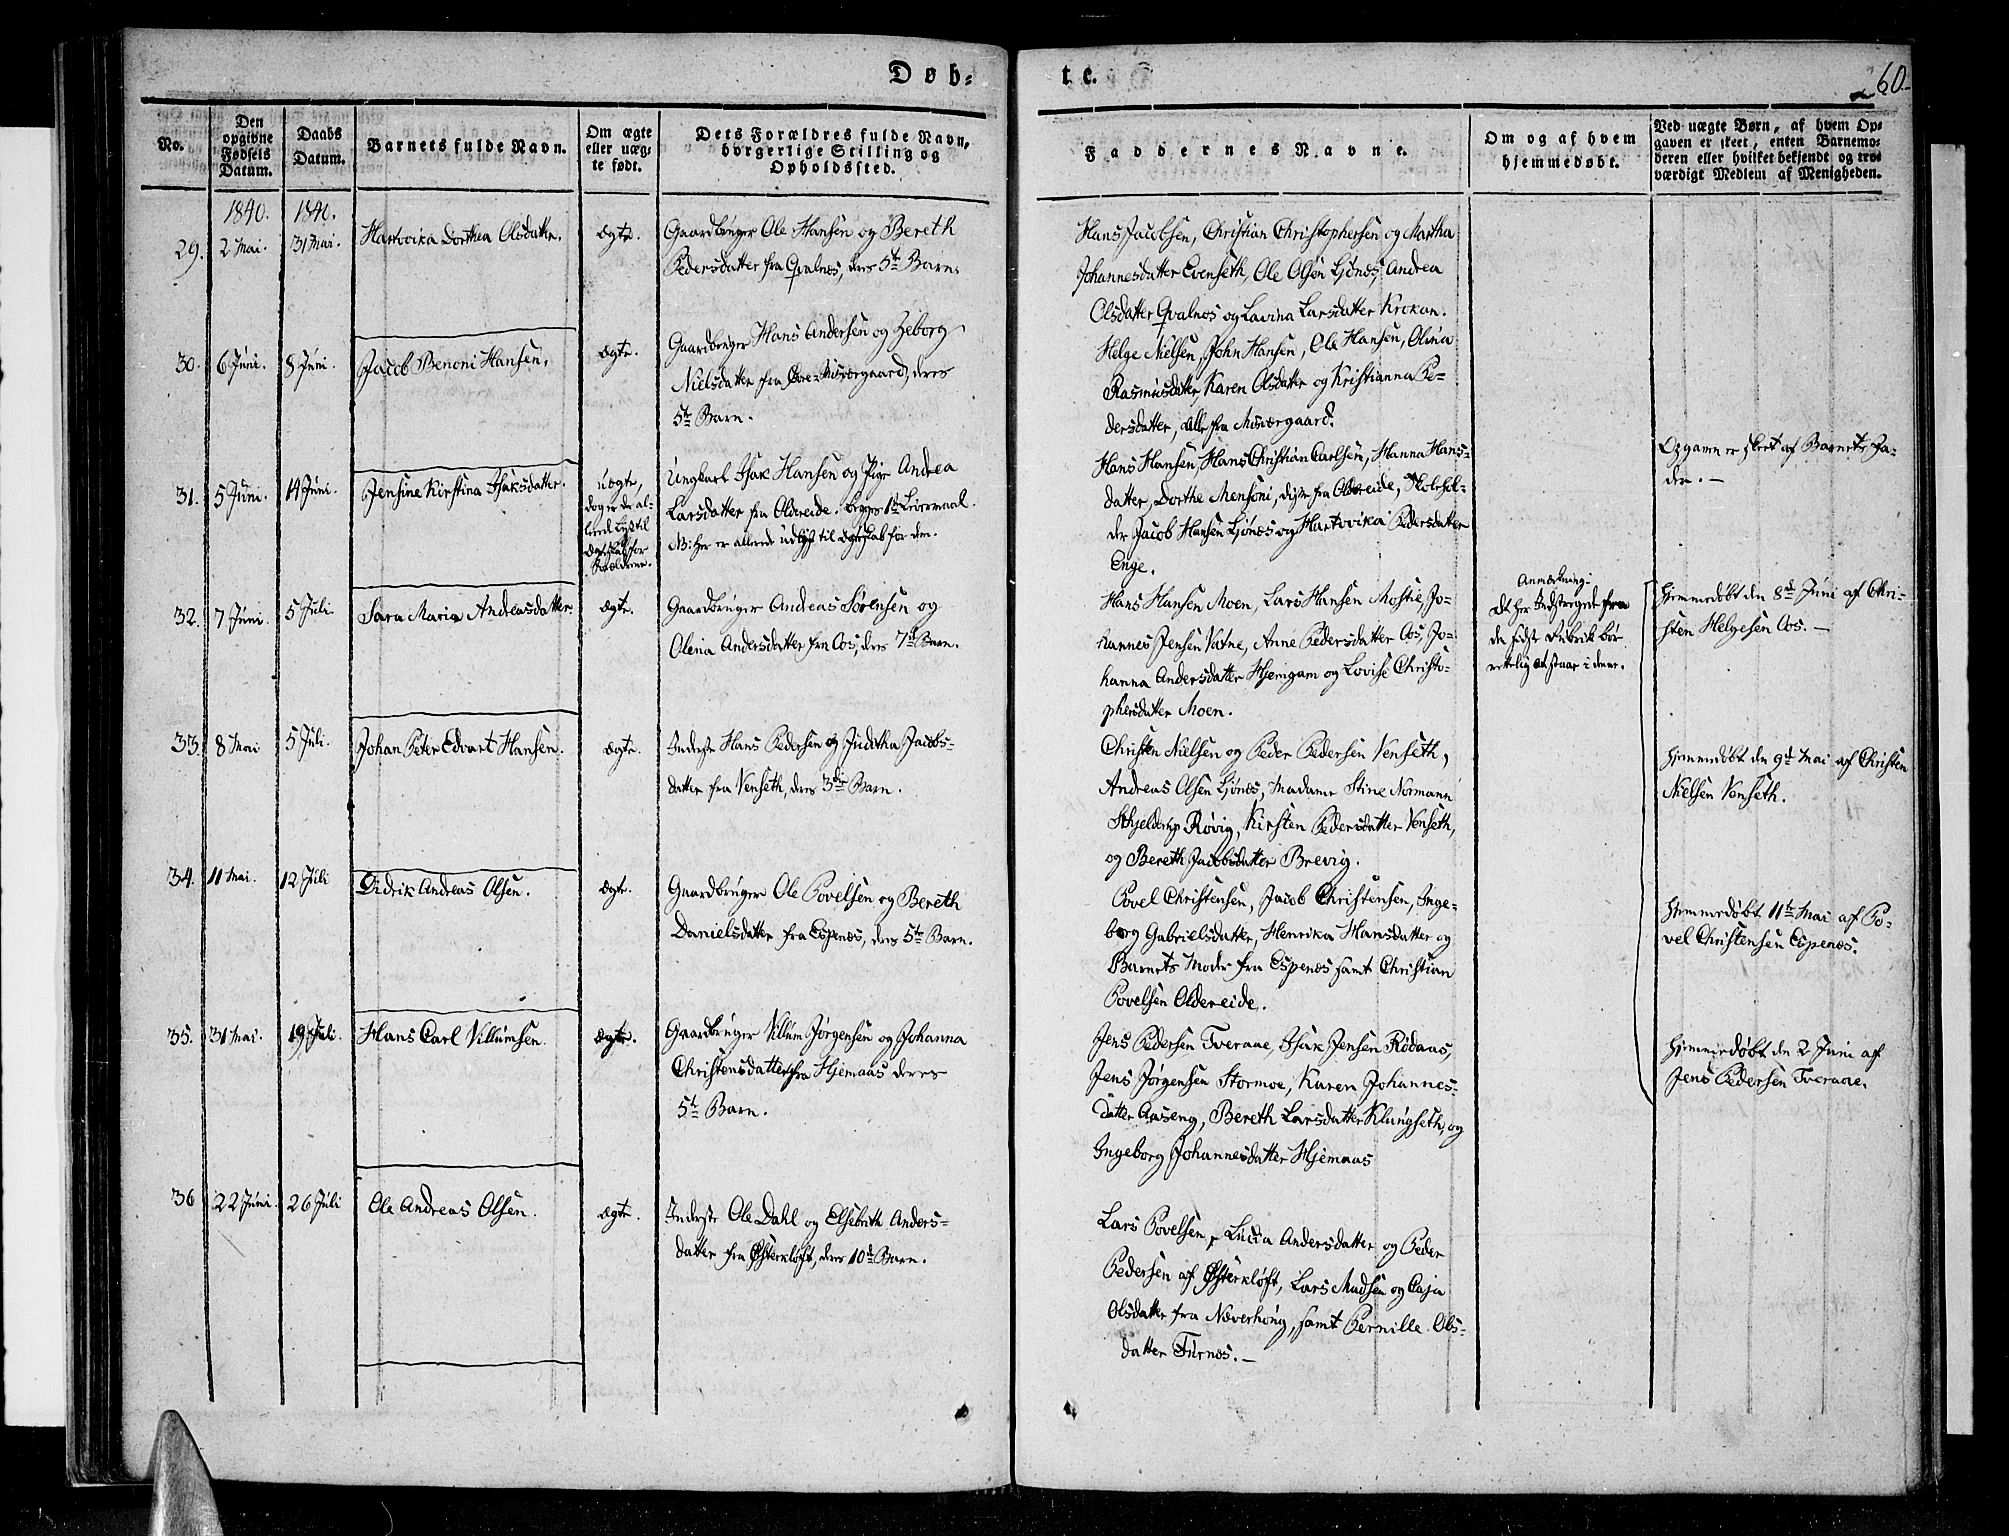 Døb-
te.
60.
No.
Den opgivne Fødsels Datum.
Daabs Datum.
Barnets fulde Navn.
Om ægte eller uægte født.
Dets Forældres fulde Navn, borgerlige Stilling og Opholdssted.
Faddernes Navne.
Om og af hvem hjemmedøbt.
Ved uægte Børn, af hvem Op-
gaven er skeet, enten Barnemo-
deren eller hvilket bekjendt og tro-
værdigt Medlem af Menigheden.
1840. 1840.
29. 2 Mai. 31 Mai. Hartvika Dorthea Olsdatter. Ægte.
Gaardbruger Ole Hansen og Bereth
Pedersdatter fra Qvalnæs, deres 5te Barn.
Hans Jacobsen, Christian Christophersen og Martha
Johannesdatter Evenseth, Ole Olsen Ljønæs, Andrea
Olsdatter Qvalnæs og Lavina Larsdatter Krokan.
30. 6 Juni. 8 Juni. Jacob Benoni Hansen. Ægte.
Gaardbruger Hans Andersen og Zeborg
Nielsdatter fra Misværgaard, deres
5te Barn.
Helge Nielsen, John Hansen, Ole Hansen, Olina
Rasmusdatter, Karen Olsdatter og Kristianna Pe-
dersdatter, alle fra Misværgaard.
31. 5 Juni. 14 Juni. Jensine Kirstina Isaksdatter.
uægte,
dog er de al-
lerede lyst til
Ægteskab for
Forældrene.
Ungkarl Isak Hansen og Pige Andrea
Larsdatter fra Oldereide. Begges 1ste Leiermaal.
NB: her er allerede udlyst til Ægteskab for dem.
Hans Hansen, Hans Christian Carlsen, Hanna Hans-
datter, Dorthe Mensoni, disse fra Oldereide, Skolehol-
der Jacob Hansen Ljønæs og Hartvika Pedersdatter
Enge.
Opgaven er skeet af Barnets Fa-
der. —
32. 7 Juni. 5 Juli. Sara Maria Andreasdatter. Ægte.
Gaardbruger Andreas Sørensen og
Olina Andersdatter fra Oos, deres 7de Barn.
Hans Hansen Moen, Lars Hansen Mostie, Jo-
hannes Jensen Vatne, Anne Pedersdatter Oos, Jo-
hanna Andersdatter Hjemgam og Lovise Christo-
phersdatter Moen.
Anmærkning:
Det her Indstregede fra
den sidste Rubrik bør
rettelig at staae i denne.
Hjemmedøbt den 8de Juni af Chri-
sten Helgesen Oos. —
33. 8 Mai 5 Juli. Johan Peter Edvart Hansen. Ægte.
Inderste Hans Pedersen og Juditha Jacobs-
datter fra Venseth, deres 3die Barn.
Christen Nielsen og Peder Pedersen Venseth,
Andreas Olsen Ljønæs, Madame Stine Normann
Schjelderup Røvig, Kirsten Pedersdatter Venseth,
og Bereth Jacobsdatter Brevig.
Hjemmedøbt den 9de Mai af Christen
Nielsen Venseth.
34. 11 Mai. 12 Juli Didrik Andreas Olsen. Ægte.
Gaardbruger Ole Povelsen og Bereth
Danielsdatter fra Espenæs, deres 5te Barn.
Povel Christensen, Jacob Christensen, Inge-
borg Gabrielsdatter, Henrika Hansdatter og
Barnets Moder fra Espenæs samt Christian
Povelsen Oldereide.
Hjemmedøbt 11te Mai af Po-
vel Christensen Espenæs.
35. 31 Mai. 19 Juli. Hans Carl Villumsen. Ægte.
Gaardbruger Villum Jørgensen og Johanna
Christensdatter fra Hjemaas deres
5te Barn.
Jens Pedersen Tveraae, Isak Jensen Rødaas,
Jens Jørgensen Stormoe, Karen Johannes-
datter Aaseng, Bereth Larsdatter Klungseth, og
Ingeborg Johannesdatter Hjemaas
Hjemmedøbt den 2 Juni af
Jens Pedersen Tveraae.
36 22 Juni. 26 Juli Ole Andreas Olsen. Ægte.
Inderste Ole Dahl og Elsebeth Anders-
datter fra Østerkløft, deres 10de Barn.
Lars Povelsen, Lucia Andersdatter og Peder
Pedersen af Østerkløft, Lars Madsen og Caja
Olsdatter fra Næverhoug, samt Pernille Ols-
datter Furnæs. —